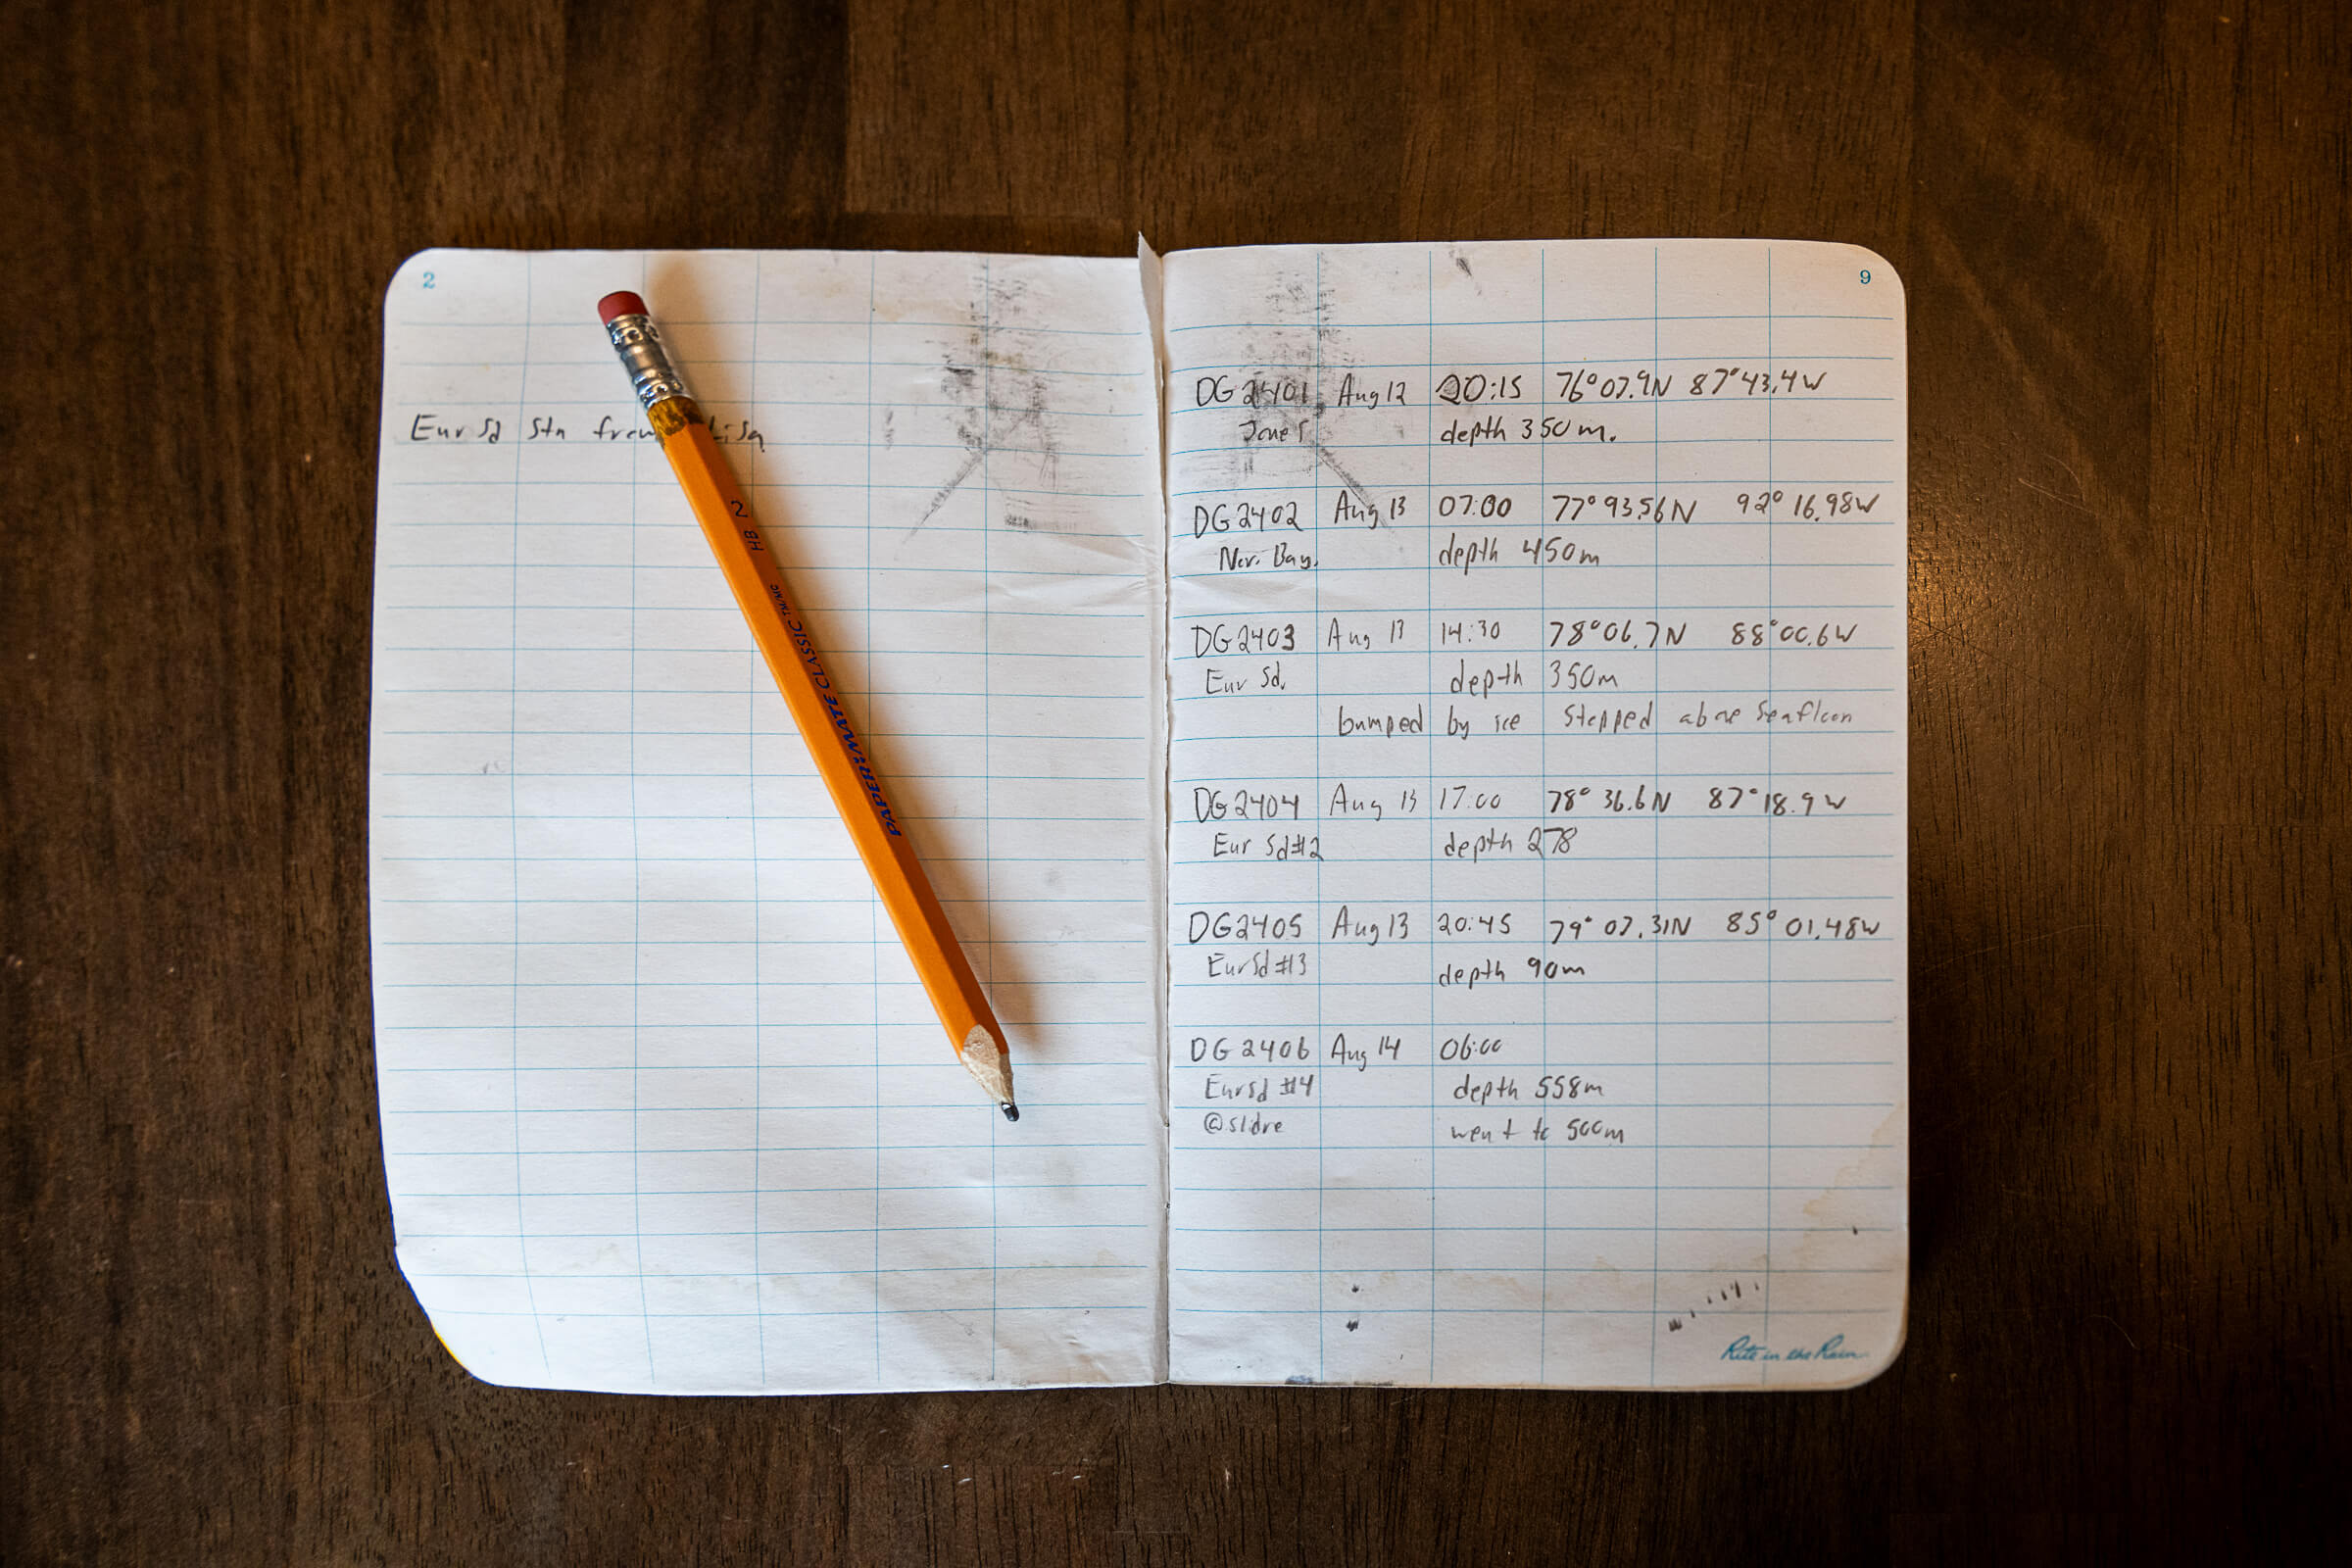 2
Eur Sd Stn from Lisa
HB 2
PAPER MATE CLASSIC
9
DG2401 Aug 12 20:15 76°07.9N 87°43.4W
Jones depth 350m.
DG2402 Aug 13 07:00 77°93.56N 92°16.98W
Nor. Bay. depth 450m
DG2403 Aug 13 14:30 78°06.7N 88°00.6W
Eur Sd. depth 350m
bumped by ice Stopped above Seafloor
DG2404 Aug 13 17:00 78°36.6N 87°18.9W
Eur Sd#2 depth 278
DG2405 Aug 13 20:45 79°07.31N 85°01.48W
EurSd #3 depth 90m
DG2406 Aug 14 06:00
EurSd #4 depth 558m
@Sldre went to 500m
Rite in the Rain